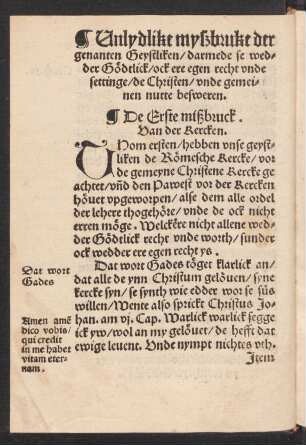 ¶ Vnlydlike myßbruke der
genanten Geystliken / darmede se wed-
der Gödtlick / ock ere egen recht vnde
settinge / de Christen / vnde gemei-
nen nutte besweren.
¶ De Erste mißbruck.
Van der Kercken.
Thom ersten / hebben vnse geyst-
liken de Römesche Kercke / vor
de gemeyne Christene Kercke ge
achtet / vñd den Pawest vor der Kercken
höuet vpgeworpen / alse dem alle ordel
der lehere thogehöre / vnde de ock nicht
erren möge. Welckere nicht allene wed-
der Gödtlick recht vnde worth / sunder
ock wedder ere egen recht ys.
Dat wort
Gades
Dat wort Gades töget klarlick an /
dat alle de ynn Christum gelöuen / syne
kercke syn / se synth wie edder wor se süs
willen / Wente also sprickt Christus Jo-
han. am vj. Cap. Warlick warlick segge
ick yw / wol an my gelöuet / de hefft dat
ewige leuent. Vnde nympt nichtes vth.
Amen amē
dico vobis /
qui credit
in me habet
vitam eter-
nam.
Item